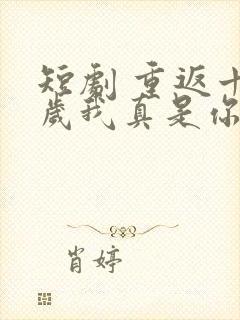 短剧重返十
岁我真是你
肖婷